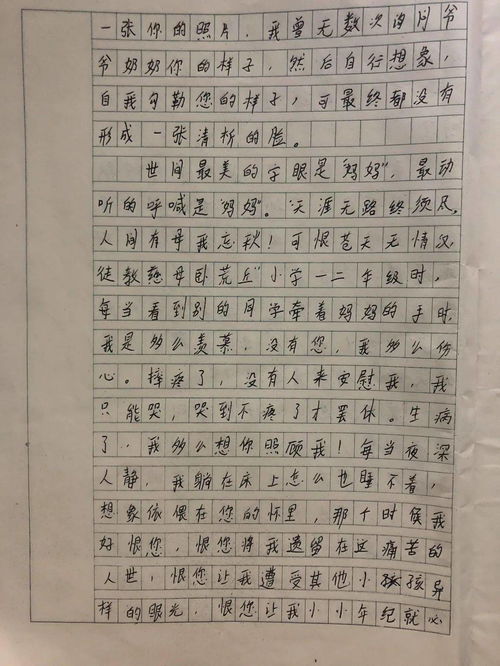 一张你的照片，我曾无数次询问爷
爷奶奶你的样子，然后自行想象，
自我勾勒您的样子，可最终都没有
形成一张清晰的脸。
世间最美的字眼是“妈妈”，最动
听的呼喊是“妈妈”。“天涯无路终须尽，
人间有母我忘秋！可恨苍天无情义
徒教慈母卧荒丘”小学一二年级时，
每当看到别的同学牵着妈妈的手时，
我是多么羡慕，没有您，我多么伤
心。摔疼了，没有人来安慰我，我
只能哭，哭到不疼了才罢休。生病
了，我多么想你照顾我！每当夜深
人静，我躺在床上怎么也睡不着，
想象依偎在您的怀里，那个时候我
好恨您，恨您将我遗留在这痛苦的
人世，恨您让我遭受其他小孩异
样的眼光，恨您让我小小年纪就必